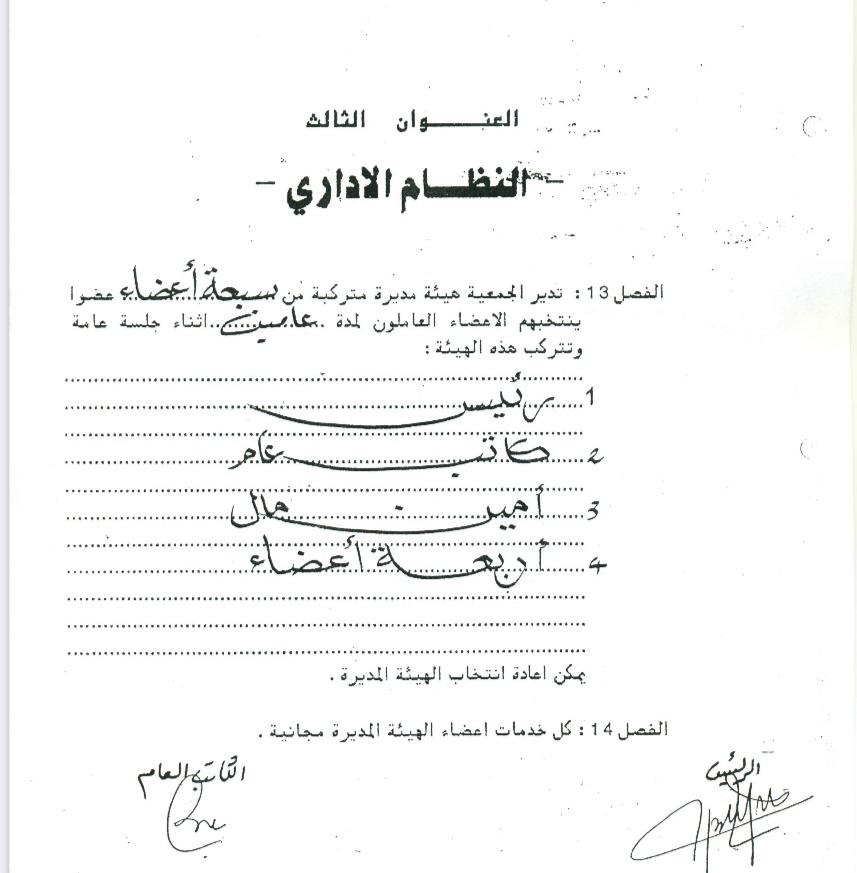 العنوان الثالث
- النظام الاداري -
الفصل 13 : تدير الجمعية هيئة مديرة متركبة من سبعة أعضاء عضوا
ينتخبهم الاعضاء العاملون لمدة عامين اثناء جلسة عامة
وتتركب هذه الهيئة :
1 رئيس
2 كاتب عام
3 أمين مال
4 أربعة أعضاء
يمكن اعادة انتخاب الهيئة المديرة .
الفصل 14 : كل خدمات اعضاء الهيئة المديرة مجانية .
الرئيس الكاتب العام